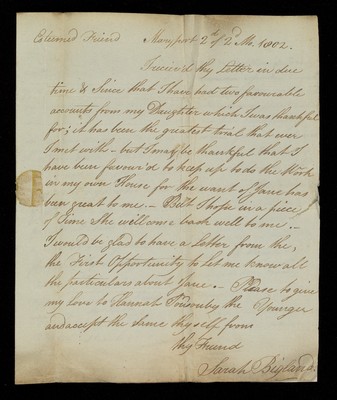 Esteemed Friend Maryport 2d of 2d Mo. 1802.
I receiv'd thy Letter in due
time & Since that I have had two favourable
accounts from my Daughter which I was thankful
for; it has been the greatest trial that ever
I met with - but I may be thankful that I
have been favour'd to keep up to do the Work
in my own House for the want of Jane has
been great to me. - But I hope in a piece
of Time She will come back well to me. -
I would be glad to have a Letter from the,
the First Opportunity to Let me know all
the particulars about Jane. - Please to give
my Love to Hannah Ponsonby the Younger
and accept the same thyself from
thy Friend
Sarah Bigland.